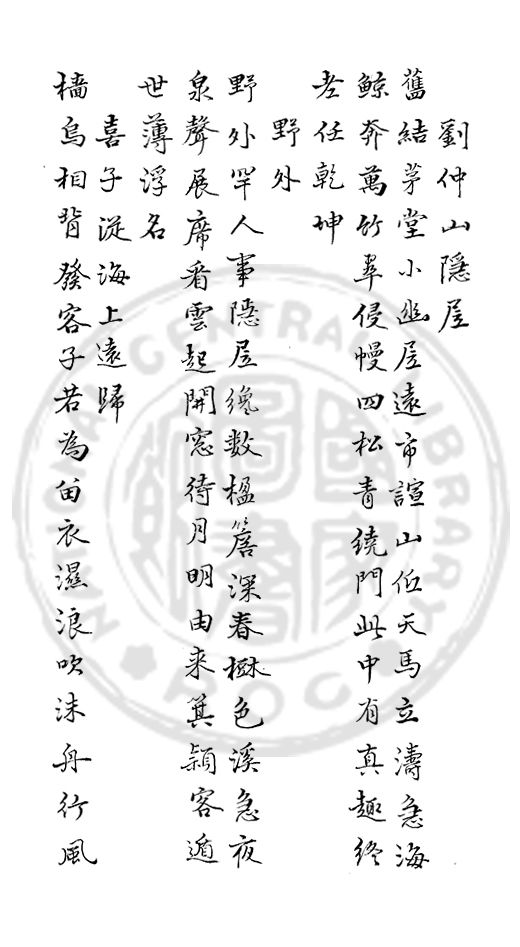 劉仲山隱居
舊結茅堂小幽居遠市諠山低天馬立濤急海
鯨奔萬竹翠侵幔四松青繞門此中有真趣終
老任乾坤
野外
野外罕人事隱居纔數楹簷深春樹色溪急夜
泉聲展席看雲起開窓待月明由来箕潁客遁
世薄浮名
喜子從海上遠歸
檣烏相背發客子若為留衣濕浪吹沫舟行風
NATIONAL CENTRAL LIBRARY
ROC